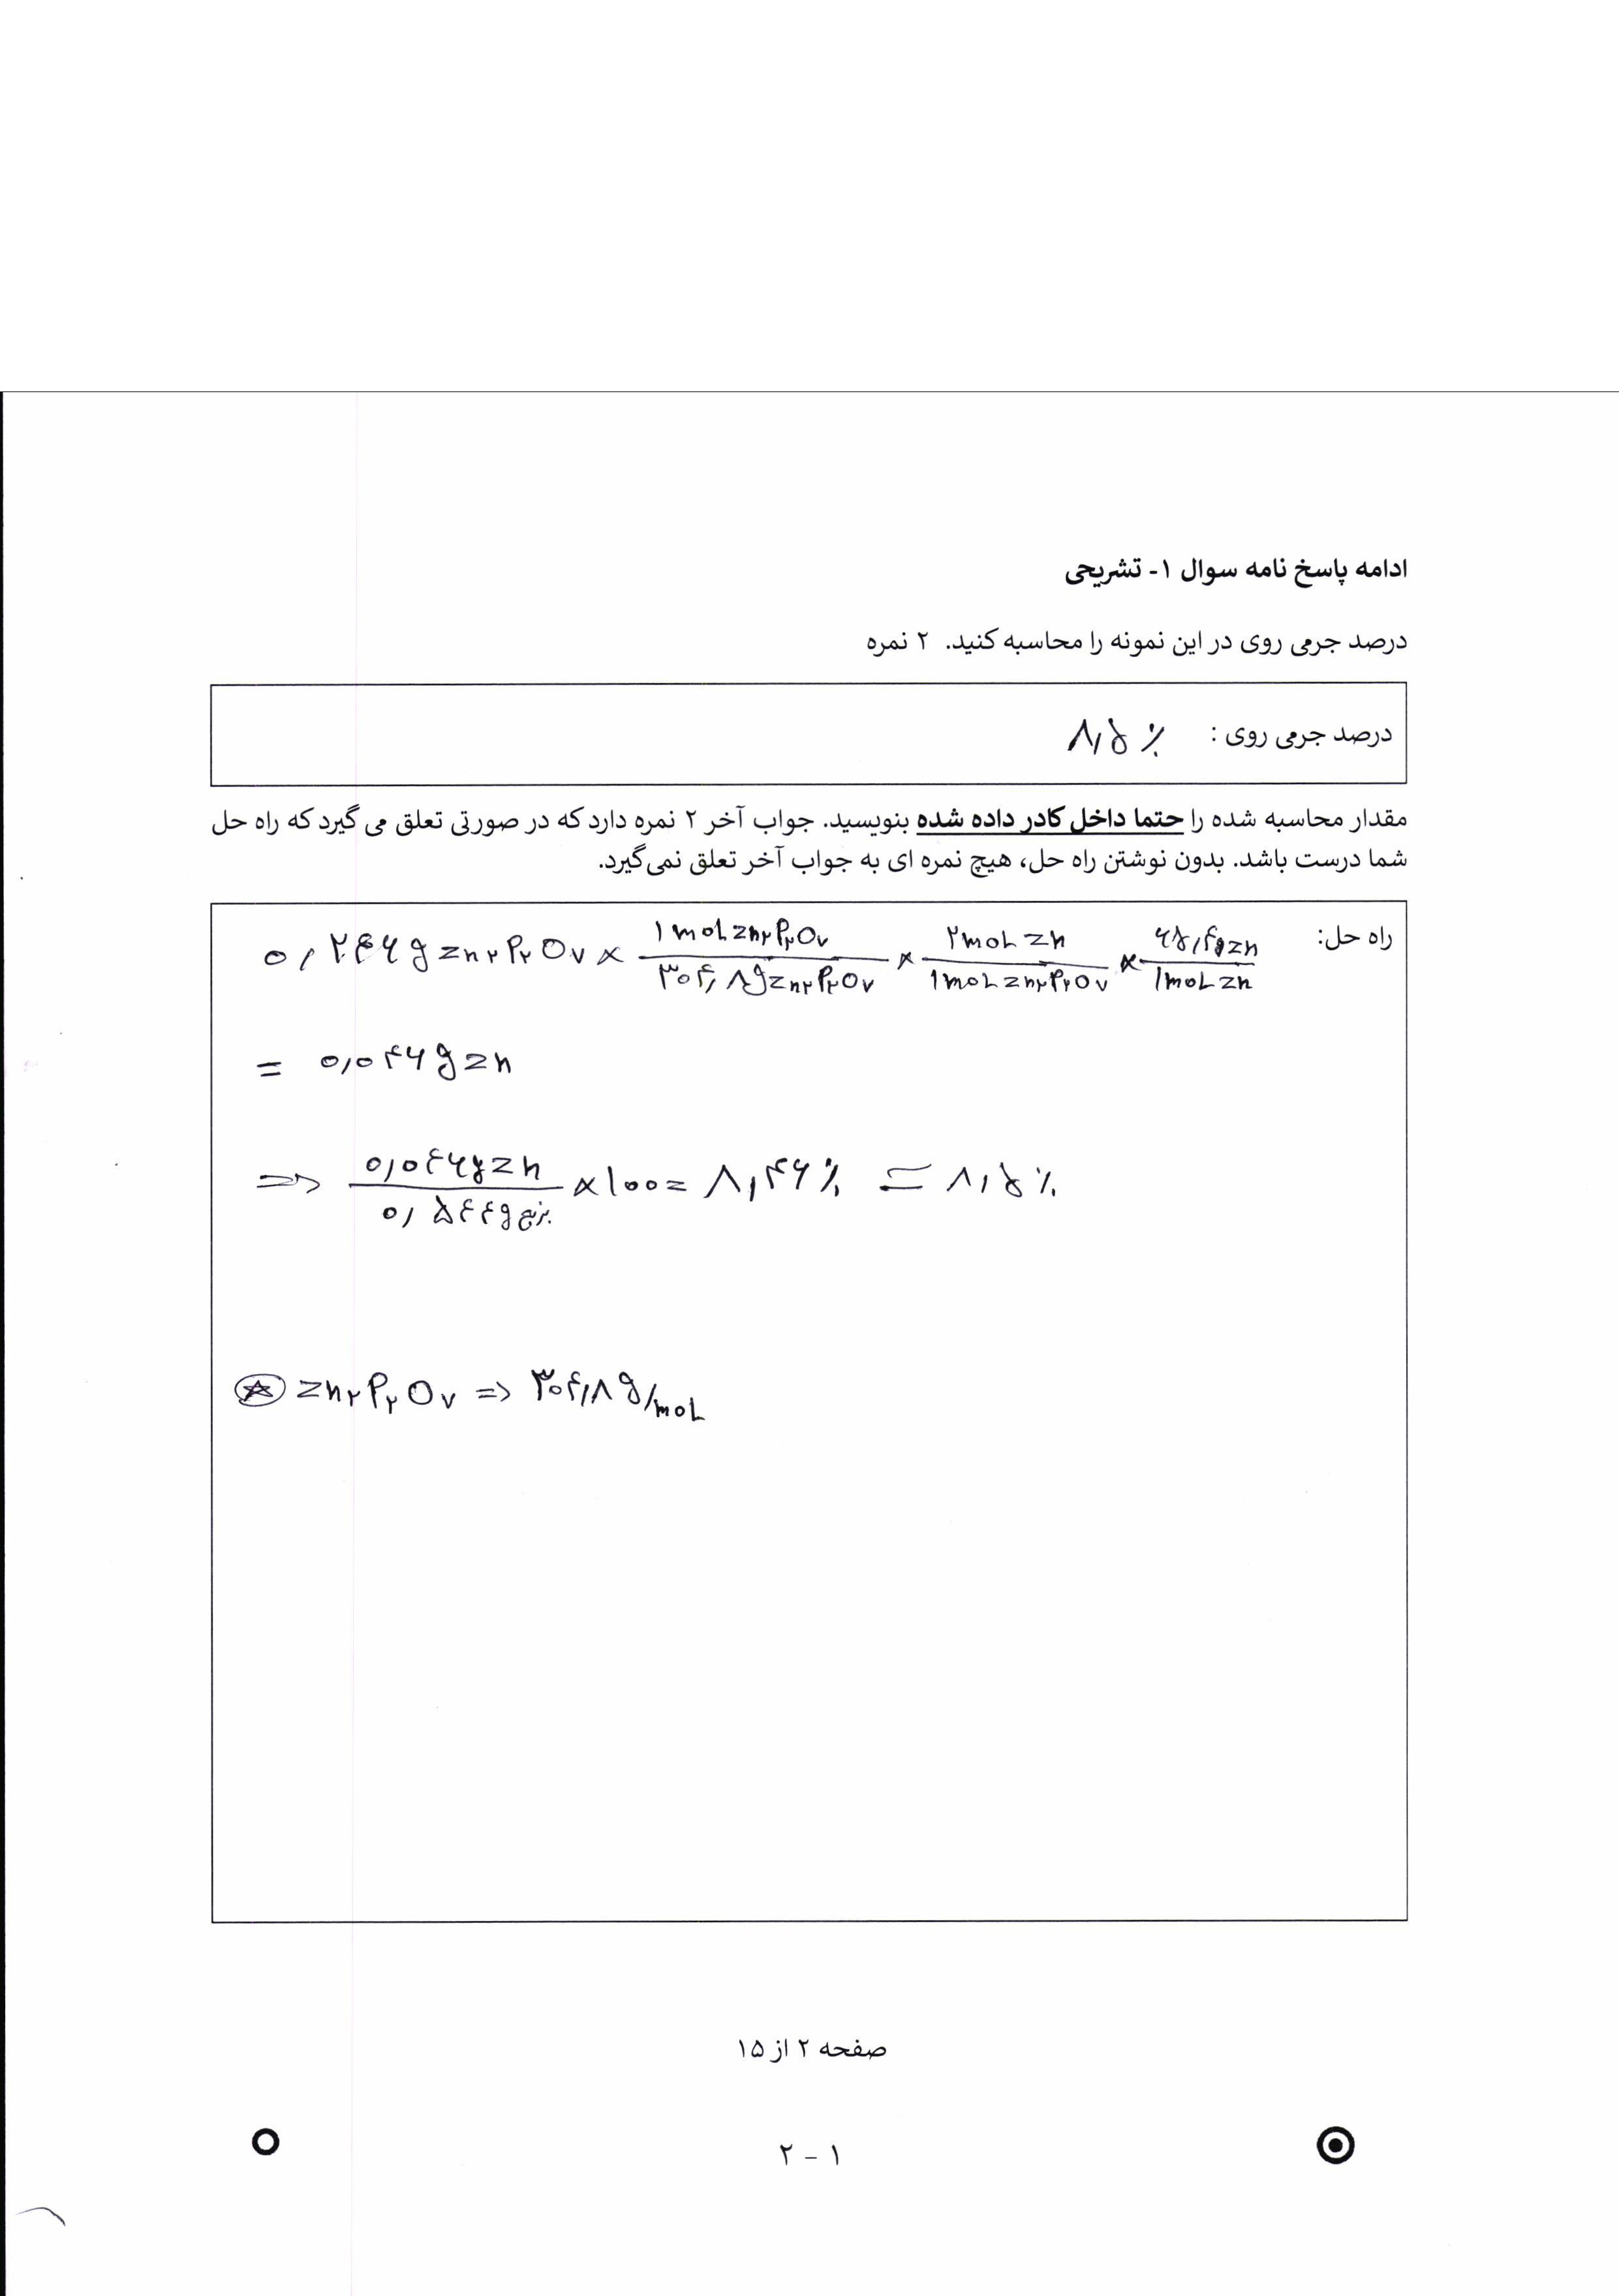 ادامه پاسخ نامه سوال ۱- تشریحی
درصد جرمی روی در این نمونه را محاسبه کنید. ۲ نمره
درصد جرمی روی : ۸٫۵ ٪
مقدار محاسبه شده را حتما داخل کادر داده شده بنویسید. جواب آخر ۲ نمره دارد که در صورتی تعلق می گیرد که راه حل
شما درست باشد. بدون نوشتن راه حل، هیچ نمره ای به جواب آخر تعلق نمی‌گیرد.
راه حل:
۰٫۲۴۶ g zn۲P۲O۷ × ۱ mol zn۲P۲O۷ / ۳۰۴٫۸ g zn۲P۲O۷ × ۲mol zn / ۱mol zn۲P۲O۷ × ۶۵٫۴ g zn / ۱mol zn
= ۰٫۰۴۶ g zn
=> ۰٫۰۴۶ g zn / ۰٫۵۴۴ g برنج × ۱۰۰ = ۸٫۴۶ ٪ = ۸٫۵ ٪
☆ zn۲P۲O۷ => ۳۰۴٫۸ g/mol
صفحه ۲ از ۱۵
۲ - ۱